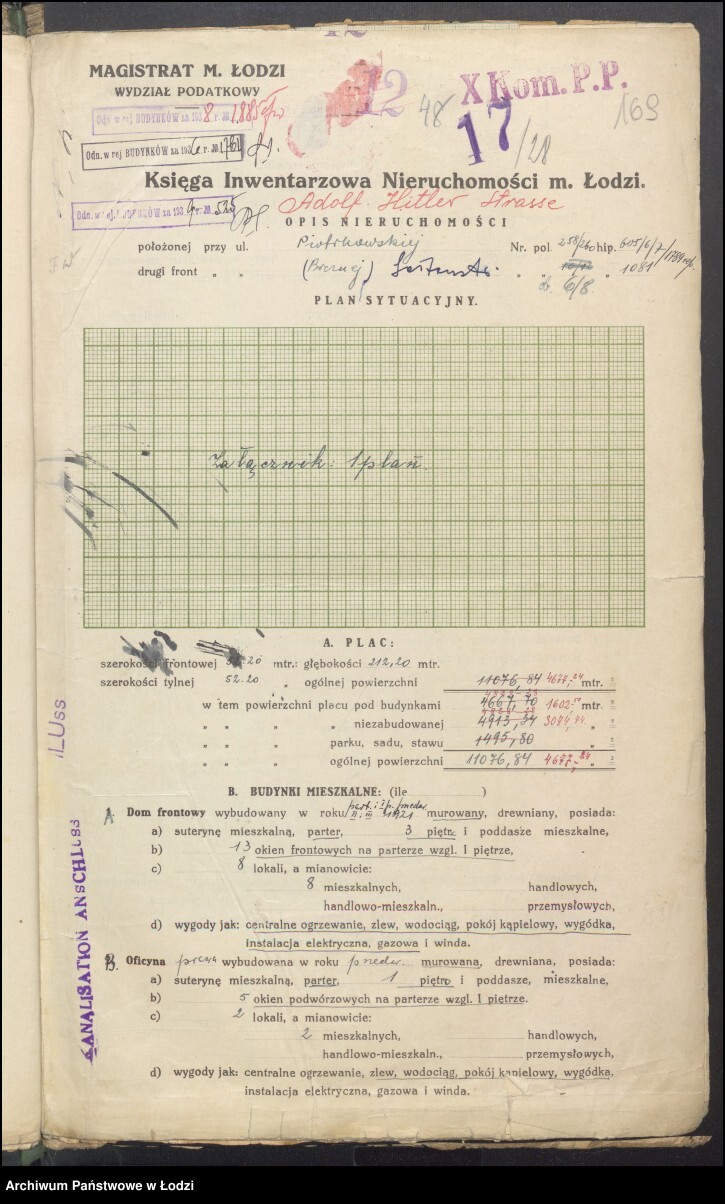 MAGISTRAT M. ŁODZI
WYDZIAŁ PODATKOWY
12
X Kom. P.P.
48
169
17
/28
Odn. w rej BUDYNKÓW za 1938 r. №
Odn. w rej BUDYNKÓW za 193 r. №
Księga Inwentarzowa Nieruchomości m. Łodzi.
Adolf Hitler Strasse
Odn. w rej. BUDYNKÓW za 193 r. № 535
OPIS NIERUCHOMOŚCI
położonej przy ul. Piotrkowskiej Nr. pol. 258/260 hip. 605/6/7/
drugi front „ „ (Brzeżnej) „ „ „ 1081
6/8.
PLAN SYTUACYJNY.
Załącznik: 1 plan.
A. PLAC:
szerokości frontowej 52.20 mtr.: głębokości 212,20 mtr.
szerokości tylnej 52.20 „ ogólnej powierzchni 11076,84 4677,24 mtr. ²
w tem powierzchni placu pod budynkami 4667,70 1602,50 mtr ²
„ „ „ „ niezabudowanej 4913,34 „ ²
„ „ „ parku, sadu, stawu 1495,80 „ ²
„ „ „ ogólnej powierzchni 11076,84 4677,24 „ ²
B. BUDYNKI MIESZKALNE: (ile )
A Dom frontowy wybudowany w roku 1921 murowany, drewniany, posiada:
a) suterynę mieszkalną, parter, 3 piętr. i poddasze mieszkalne,
b) 13 okien frontowych na parterze wzgl. I piętrze,
c) 8 lokali, a mianowicie:
8 mieszkalnych, handlowych,
handlowo-mieszkaln., przemysłowych,
d) wygody jak: centralne ogrzewanie, zlew, wodociąg, pokój kąpielowy, wygódka,
instalacja elektryczna, gazowa i winda.
B. Oficyna prawa wybudowana w roku murowana, drewniana, posiada:
a) suterynę mieszkalną, parter, 1 piętro i poddasze, mieszkalne,
b) 5 okien podwórzowych na parterze wzgl. I piętrze.
c) 2 lokali, a mianowicie:
2 mieszkalnych, handlowych,
handlowo-mieszkaln., przemysłowych,
d) wygody jak: centralne ogrzewanie, zlew, wodociąg, pokój kąpielowy, wygódka,
instalacja elektryczna, gazowa i winda.
KANALISATION ANSCHLUSS
Archiwum Państwowe w Łodzi